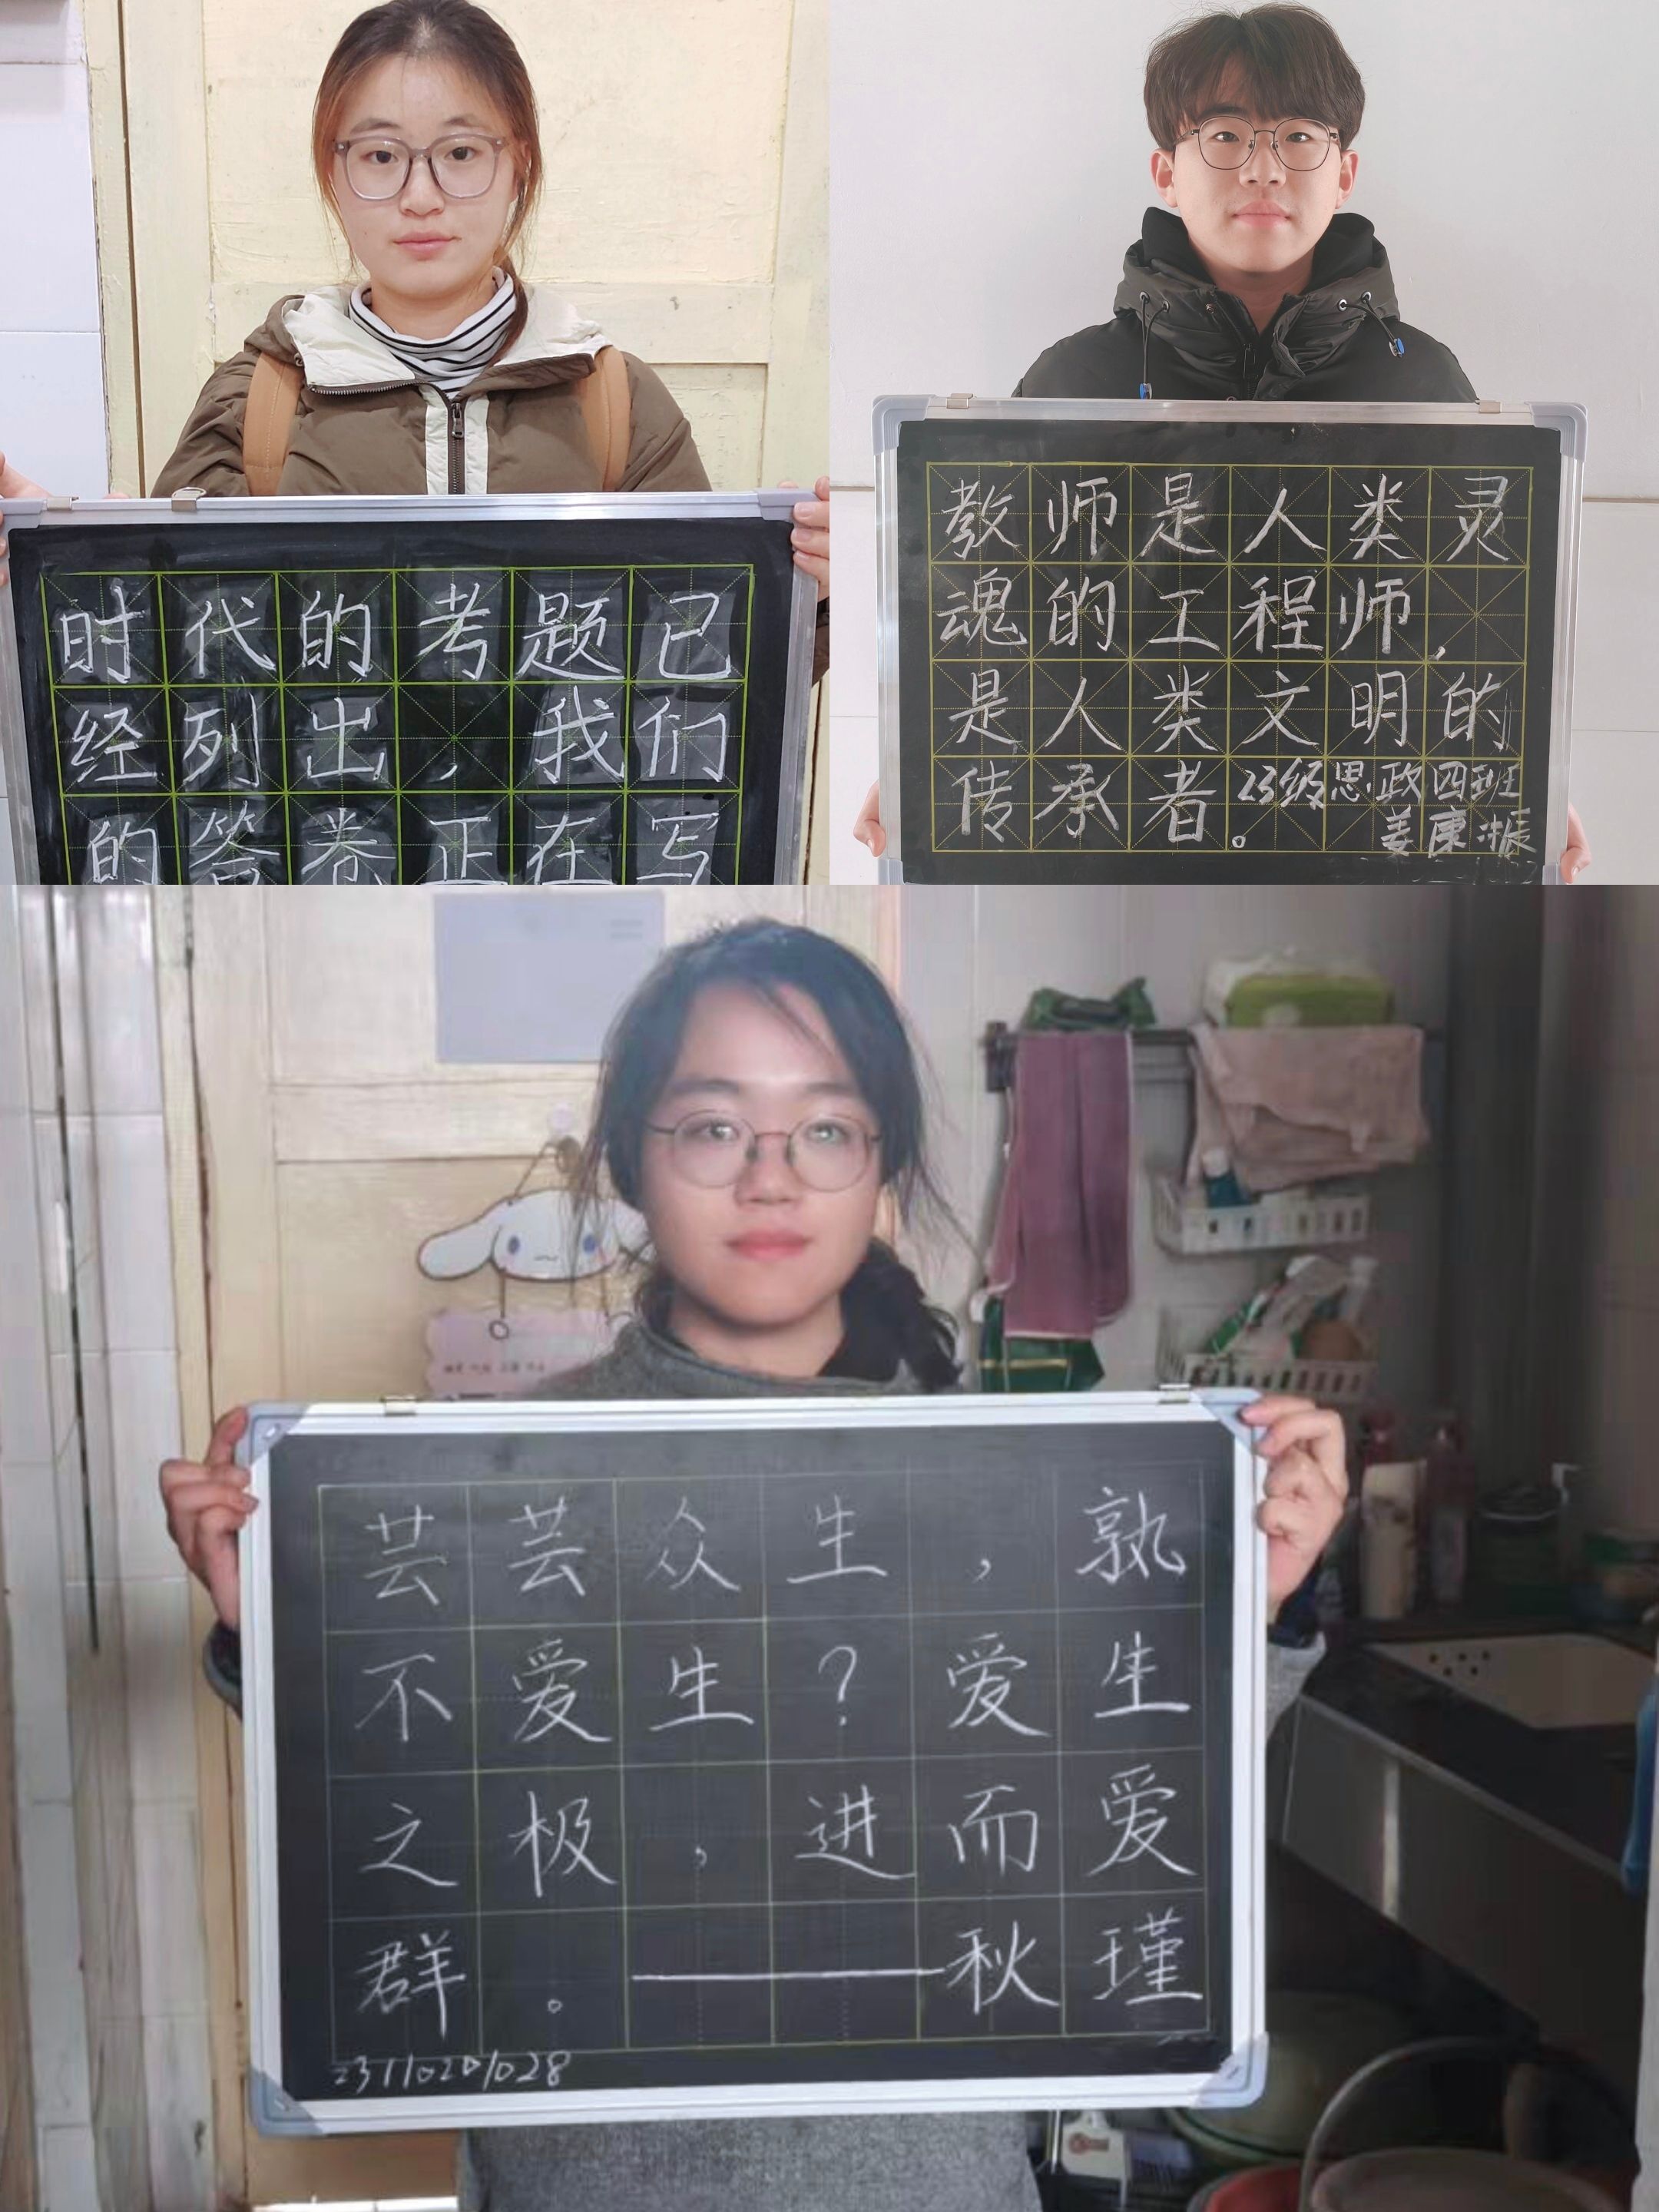 时代的考题已
经列出，我们
的答卷正在写
教师是人类灵
魂的工程师，
是人类文明的
传承者。23级思政四班
姜康振
芸芸众生，孰
不爱生？爱生
之极，进而爱
群。——秋瑾
23110201028